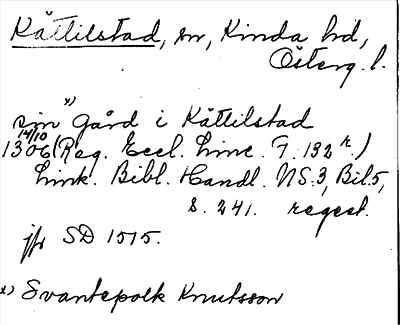 Kättilstad, sn, Kinda hd,
Österg. l.
sin x) gård i Kättilstad
14/10
1306 (Reg. Eccl. Linc. F. 132 r.)
Link. Bibl. Handl. NS. 3, Bil. 5,
s. 241. regest.
jfr SD 1515.
x) Svantepolk Knutsson